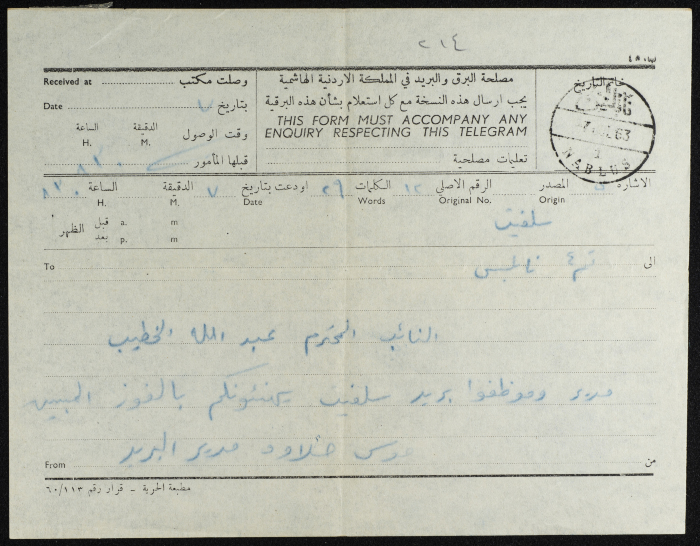 ٢١٤
Received at وصلت مكتب
Date بتاريخ ٧
الساعة الدقيقة وقت الوصول
H. M.
٨٢٠ قبلها المأمور
مصلحة البرق والبريد في المملكة الاردنية الهاشمية
يجب ارسال هذه النسخة مع كل استعلام بشأن هذه البرقية
THIS FORM MUST ACCOMPANY ANY
ENQUIRY RESPECTING THIS TELEGRAM
تعليمات مصلحية
خاتم التاريخ
نابلس
63
1
NABLUS
الاشارة المصدر الرقم الاصلي ١٢ الكلمات ٢٩ اودعت بتاريخ ٧ الدقيقة الساعة ٨٢٠
Origin Original No. Words Date M. H.
سلفيت
قبل a. m
الظهر
بعد p. m
To الى
نابلس
النائب المحترم عبد الله الخطيب
مدير وموظفوا بريد سلفيت يهنئونكم بالفوز المبين
مدير البريد
From من
مطبعة الحرية - قرار رقم ٦٠/١١٣